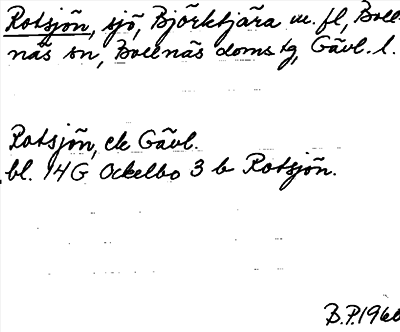 Rotsjön, sjö, Björktjära m. fl, Boll
näs sn, Bollnäs doms tg, Gävl. l.
Rotsjön, ek Gävl.
bl. 14G Ockelbo 3 b Rotsjön.
B.P. 1966